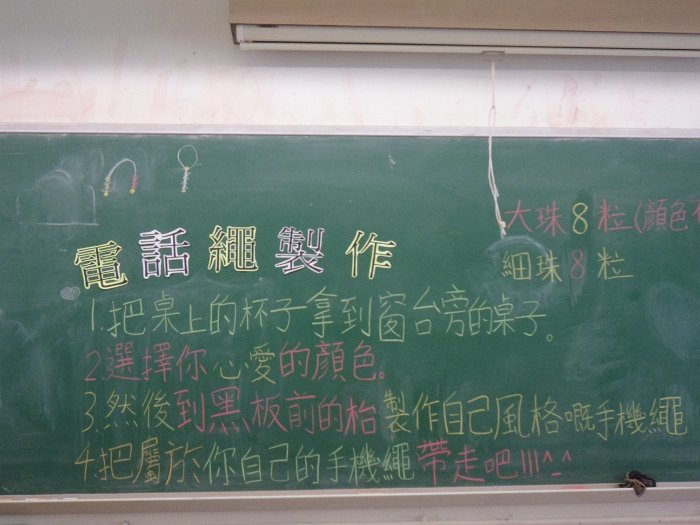 大珠8粒(顏色
細珠8粒
電話繩製作
1.把桌上的杯子拿到窗台旁的桌子。
2.選擇你心愛的顏色。
3.然後到黑板前的枱製作自己風格嘅手機繩
4.把屬於你自己的手機繩帶走吧!!!^_^